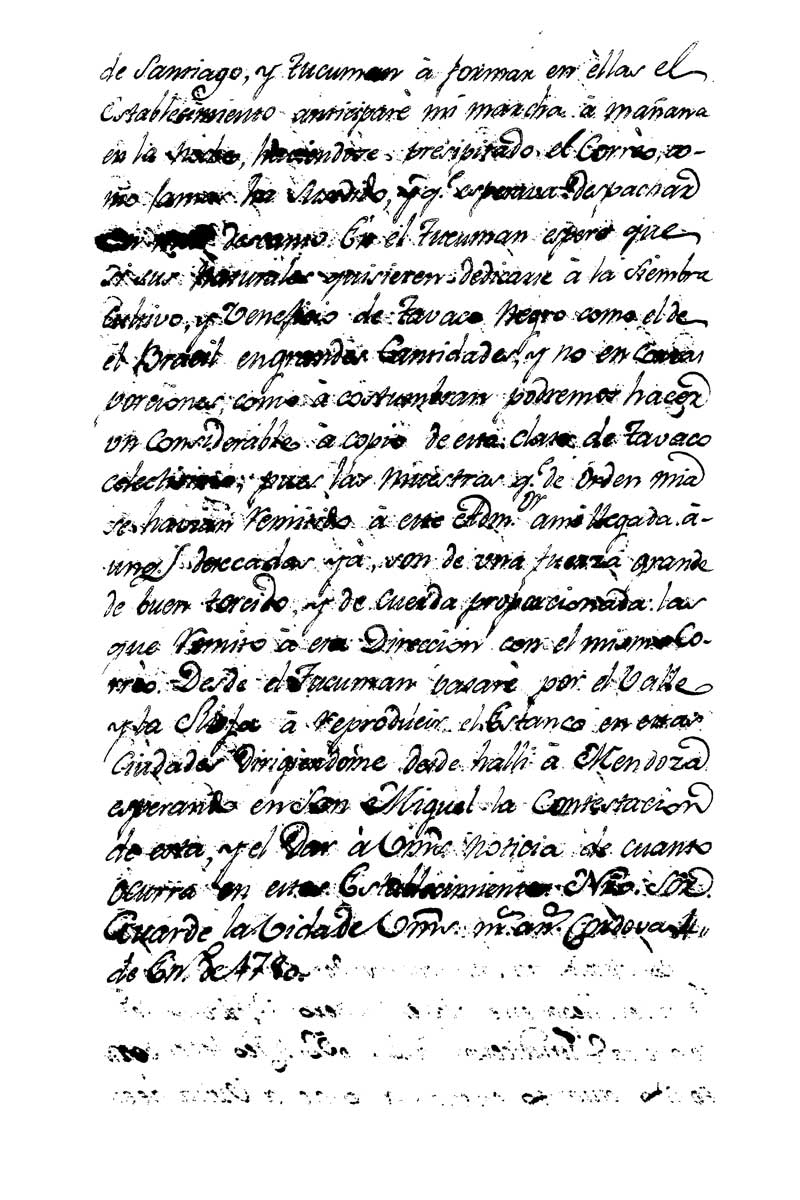 de Santiago, y Tucuman â formar en èllas el
Establesimiento anticiparè mi marcha â mañana
en la Noche, haciendose presipitado el Corrèo, co-
mo jamas ha Sucedido, y q.e esperava Despachar
descanso. En el Tucuman espero que
si sus Naturales quisieren dedicarse â la Siembra
Cultivo, y Veneficio de Tavaco Negro como el de
el Brasil en grandes Cantidades, y no en cortas
porciones, como â costumbran podremos hacer
un Considerable â copio de esta clase de Tavaco
pues las Muestras q.e de Orden mia
se havian Remitido â este Adm.or a mi llegada â-
unq.e desecadas yà, son de una fuerza grande
de buen torcido, y de cuerda proporcionada las
que Remito â esa Direccion con el mismo Co-
rrèo. Desde el Tucuman pasarè por el Valle
y la Rioja â reproducir el Estanco en estas
Ciudades Dirigiendome desde halli â Mendoza
esperando en San Miguel la Contestacion
de esta, y el Dar â Vms. noticia de cuanto
ocurra en estos Establecimientos. Nro. Sor.
Guarde la Vida de Vms. m.s an.s Cordova 4
de En.o de 1780.